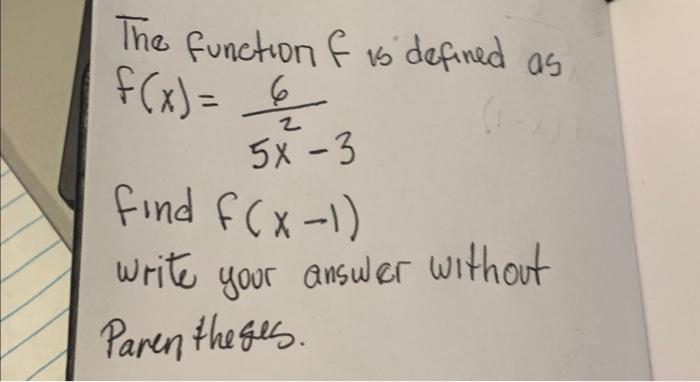 The function f is defined as
f(x) = 6
5x² - 3
find f(x-1)
write your answer without
Parentheses.